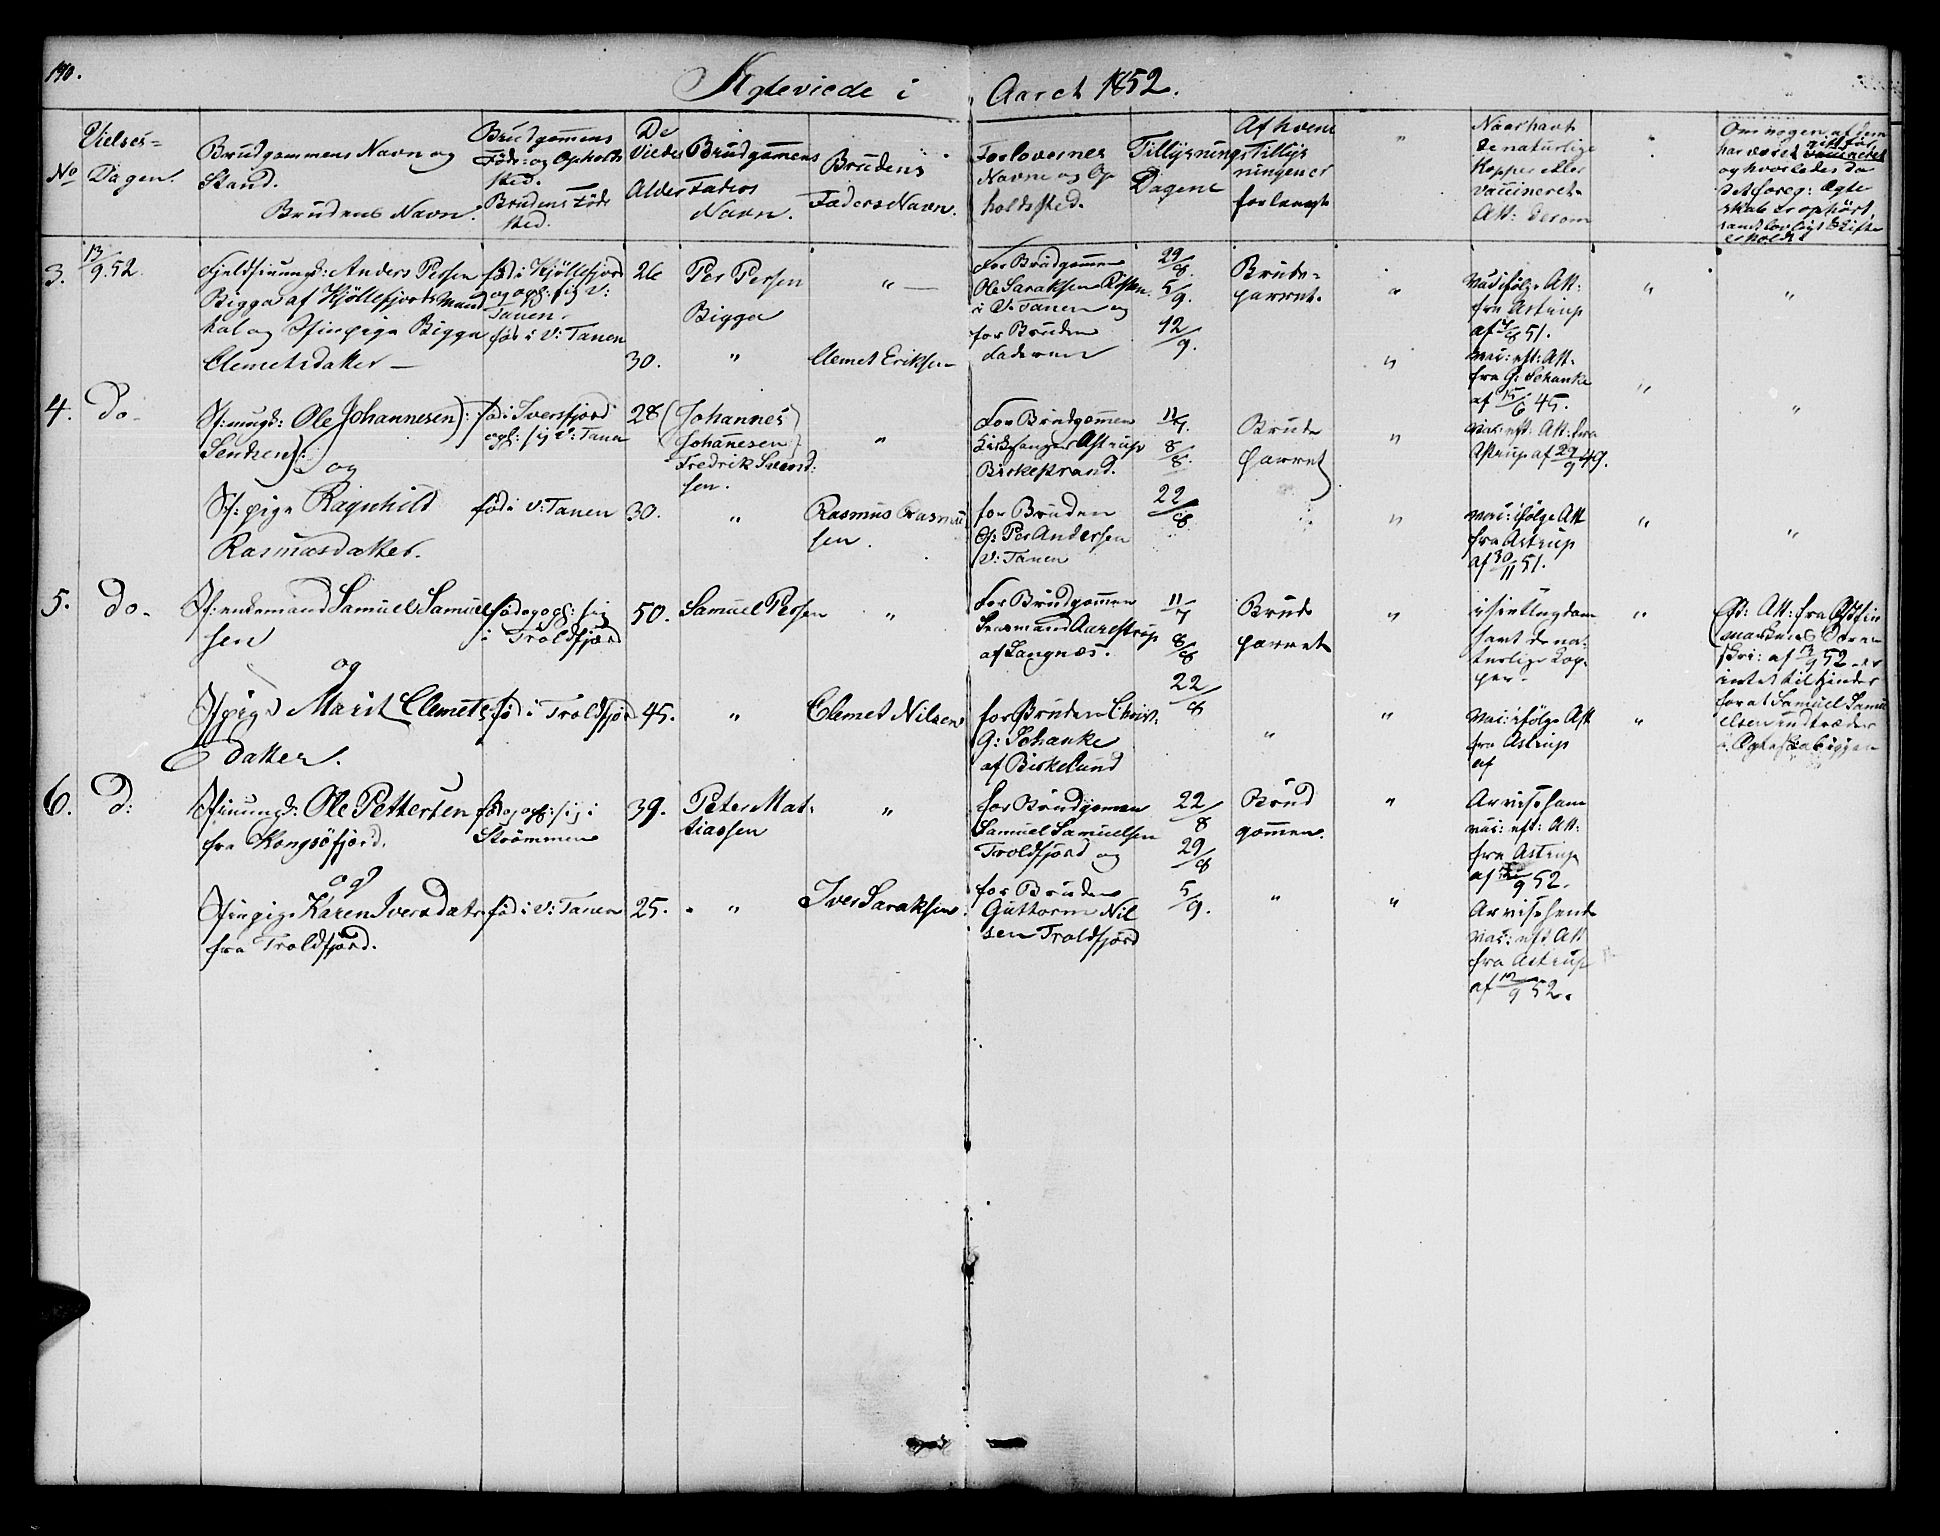 190.
Ægteviede i Aaret 1852.
No
Vielses-
Dagen.
Brudgommens Navn og
Stand.
Brudens Navn.
Brudgommens
Føde- og Opholds
sted.
Brudens Føde
sted.
De
Viedes
Alder
Brudgomens
Faders
Navn.
Brudens
Faders Navn.
Forlovernes
Navne og Op
holdssted.
Tillysnings
Dagene
Af hvem
Tillys
ningen er
forlangt
"
Naar havt
de naturlige
Kopper eller
vaccineret.
Att: derom
"
Om nogen af dem
har været gift før
og hvorledes da
det foreg: Ægte
skab er ophørt,
samt lovligt Skifte
er holdt
3.
13/9. 52.
Anders Persen
Bigga af Kjöllefjords Mand
tal og Finpige Bigga
Clemetsdatter —
fød i Kjöllefjord
og oph: sig V:
Tanen.
fød i V: Tanen
26
30.
Per Persen
Bigga
"
" —
Clemet Eriksen
For Brudgommen
Ole Saraksen
i V: Tanen og
for Bruden
Faderen
29/8.
5/9.
12/9.
Brude-
parret.
"
"
vac ifølge Att:
fra Astrup
af 51.
vac: eft: Att:
fra G: Schanke
af 15/6 45.
"
"
"
4.
Do-
Ole Johannesen):
og
Ragnhild
Rasmusdatter.
fød i Iversfjord
oph: sig V: Tanen
fød i V: Tanen
28
30.
(Johannes
Johanesen)
Fredrik
sen.
"
"
Rasmus Rasmu
sen.
For Brudgommen
Kirkesanger Astrup
Birkestrand.
for Bruden
G: Per Andersen
V: Tanen
11/7.
8/8.
22/8
Brude
parret
"
"
vac: eft: Att: fra
Astrup af 29/9 49.
vac: ifølge Att
fra Astrup
af 30/11 51.
"
"
"
5.
Do-
Enkemand Samuel Samuel
sen
og
Marit Clemets
datter.
fød og oph: sig
i Troldfjord
fød i Troldfjord
50.
45.
Samuel Persen
"
"
Clemet Nilsen
For Brudgommen
Lensmand Aarestrup
af Langnæs.
for Bruden Christ.
G: Schanke
af Birkelund
11/7
8/8
22/8
Brude
parret
"
"
"
i sin Ungdom
havt de na-
turlige Kop-
per.
vac: ifølge Att
fra Astrup
af
"
"
Eft: Att: fra Østfin
markens Soren
skri: af 13/9 52 er
intet til Hinder
for at Samuel Samu
elsen indtræder
i Ægteskab igjen
6.
D:
Ole Pettersen
fra Kongsöfjord.
og
Finpige Karen Iversdatr
fra Troldfjord.
fød og oph: sig i
Strömmen
fød i V: Tanen
39.
25.
Peter Mat-
tiassen
"
"
Iver Saraksen.
for Brudgomen
Samuel Samuelsen
Troldfjord og
for Bruden
Guttorm Nil
sen Troldfjord
22/8
29/8
5/9.
Brud
gommen.
"
"
"
Ar vis. ham
vac: eft: Att:
fra Astrup
af 9 52.
Ar vis. hende
vac: eft Att
fra Astrup
af 12/9 52.